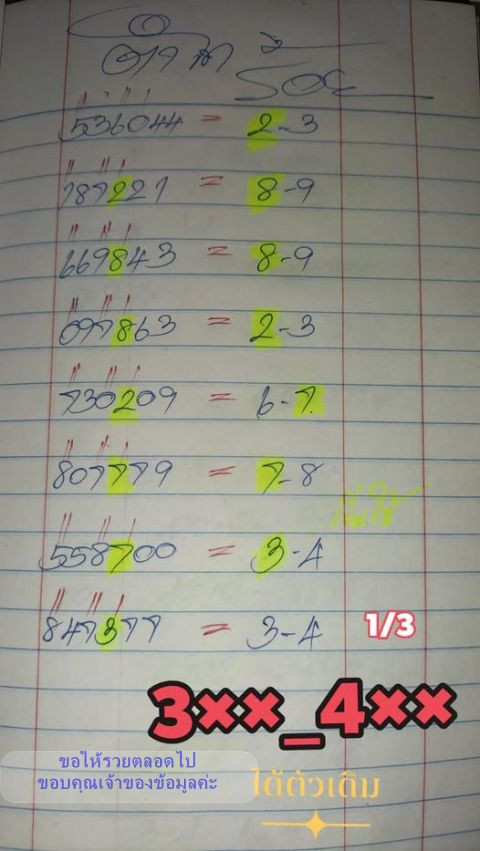 536044 = 2-3
187221 = 8-9
669843 = 8-9
097863 = 2-3
730209 = 6-7
807779 = 7-8
558700 = 3-4
847377 = 3-4
1/3
3××_4××
ขอให้รวยตลอดไป
ขอบคุณเจ้าของข้อมูลค่ะ
ได้ตัวเดิม